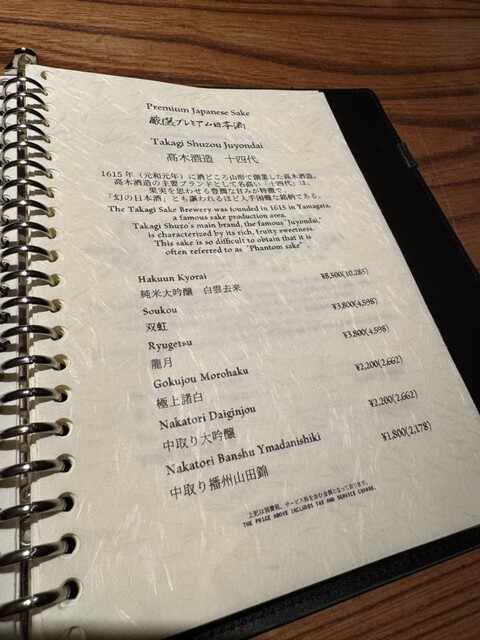 Premium Japanese Sake
厳選プレミアム日本酒
Takagi Shuzou Juyondai
高木酒造 十四代
1615年（元和元年）に酒どころ山形で創業した高木酒造。
高木酒造の主要ブランドとして名高い「十四代」は、
果実を思わせる豊潤な甘みが特徴で、
「幻の日本酒」とも謳われるほど入手困難な銘柄である。
The Takagi Sake Brewery was founded in 1615 in Yamagata,
a famous sake production area.
Takagi Shuzo's main brand, the famous "Juyondai,"
is characterized by its rich, fruity sweetness.
This sake is so difficult to obtain that it is
often referred to as "Phantom sake"
Hakuun Kyorai ¥8,500(10,285)
純米大吟醸 白雲去来
Soukou ¥3,800(4,598)
双虹
Ryugetsu ¥3,800(4,598)
龍月
Gokujou Morohaku ¥2,200(2,662)
極上諸白
Nakatori Daiginjou ¥2,200(2,662)
中取り大吟醸
Nakatori Banshu Ymadanishiki ¥1,800(2,178)
中取り播州山田錦
上記は消費税、サービス料を含む金額となっております。
THE PRICE ABOVE INCLUDES TAX AND SERVICE CHARGE.